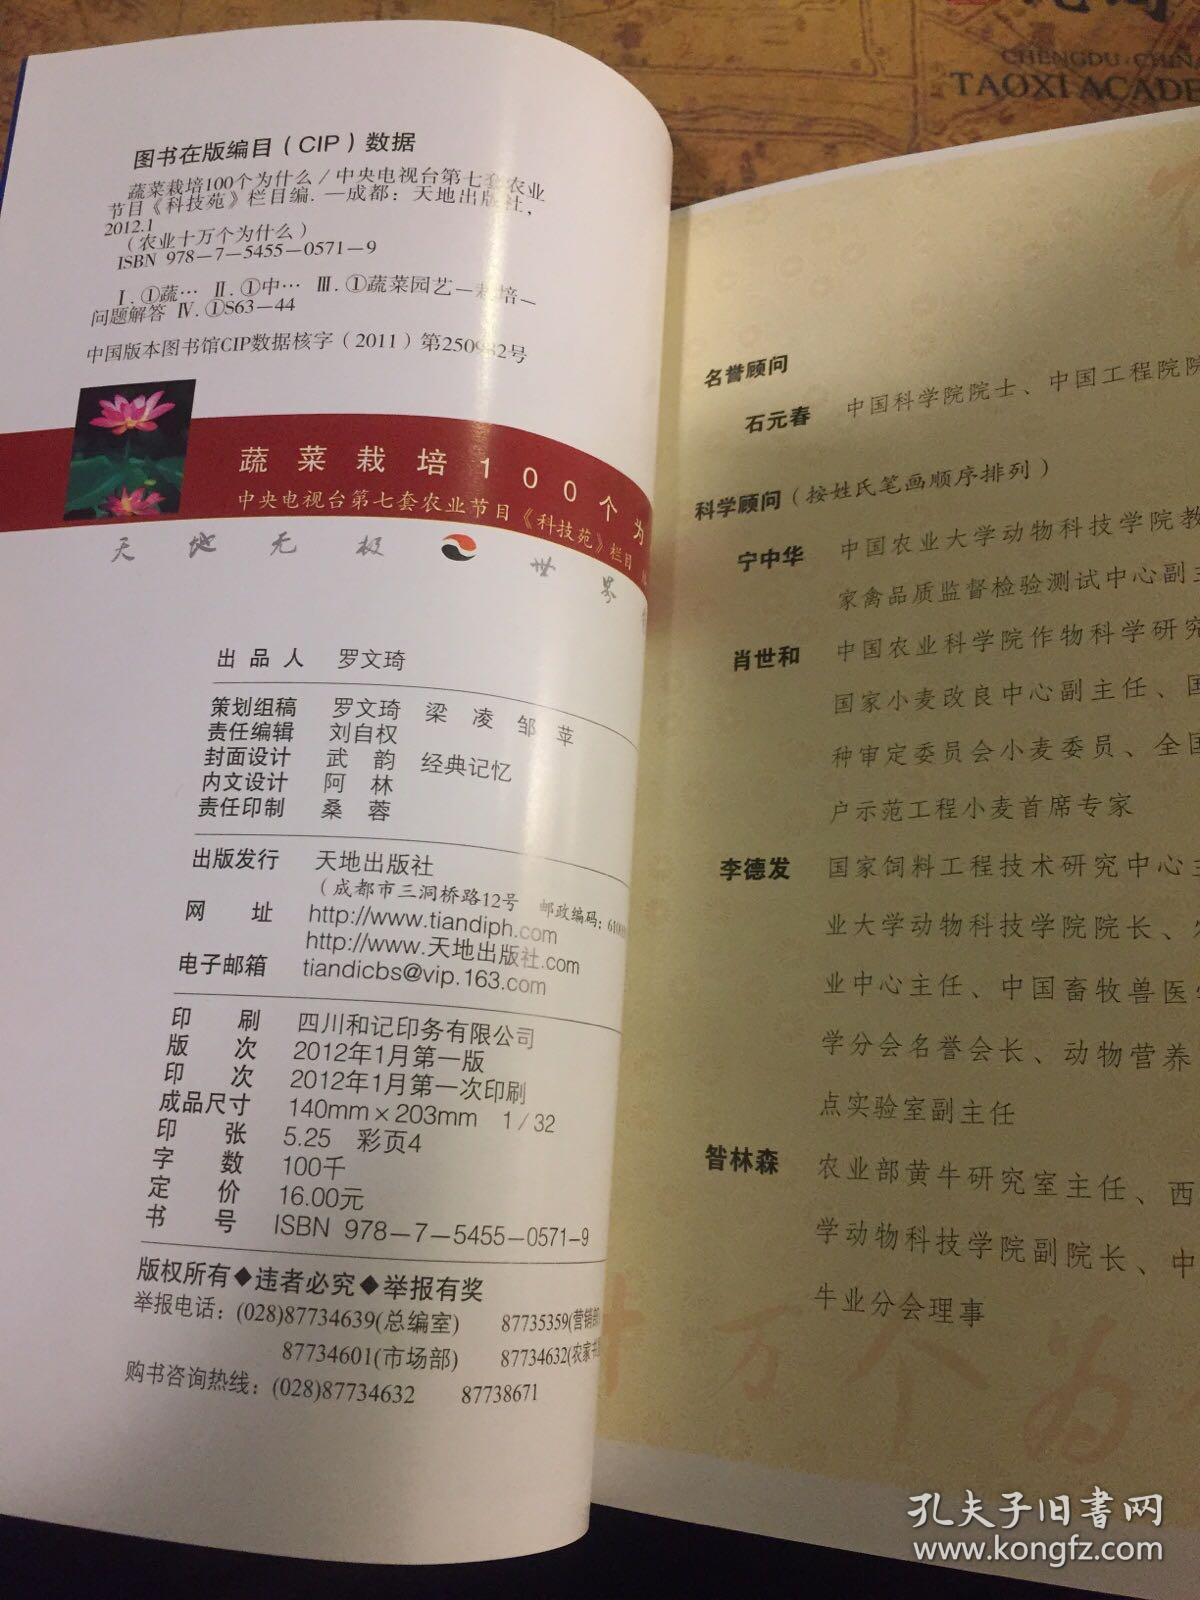 CHENGDU·CHINA
TAOXI ACADE
图书在版编目(CIP)数据
蔬菜栽培100个为什么/中央电视台第七套农业
节目《科技苑》栏目编.—成都：天地出版社，
2012.1
(农业十万个为什么)
ISBN 978-7-5455-0571-9
Ⅰ.①蔬… Ⅱ.①中… Ⅲ.①蔬菜园艺—栽培—
问题解答 Ⅳ.①S63-44
中国版本图书馆CIP数据核字(2011)第250982号
蔬菜栽培100个为
中央电视台第七套农业节目《科技苑》栏目
天地无极 世界
出品人 罗文琦
策划组稿 罗文琦 梁凌 邹苹
责任编辑 刘自权
封面设计 武韵 经典记忆
内文设计 阿林
责任印制 桑蓉
出版发行 天地出版社
(成都市三洞桥路12号 邮政编码：6100
网址 http://www.tiandiph.com
http://www.天地出版社.com
电子邮箱 tiandicbs@vip.163.com
印刷 四川和记印务有限公司
版次 2012年1月第一版
印次 2012年1月第一次印刷
成品尺寸 140mm×203mm 1/32
印张 5.25 彩页4
字数 100千
定价 16.00元
书号 ISBN 978-7-5455-0571-9
版权所有◆违者必究◆举报有奖
举报电话：(028)87734639(总编室) 87735359(营销部
87734601(市场部) 87734632(农家书
购书咨询热线：(028)87734632 87738671
名誉顾问
石元春 中国科学院院士、中国工程院院
科学顾问(按姓氏笔画顺序排列)
宁中华 中国农业大学动物科技学院教
家禽品质监督检验测试中心副主
肖世和 中国农业科学院作物科学研究
国家小麦改良中心副主任、国
种审定委员会小麦委员、全国
户示范工程小麦首席专家
李德发 国家饲料工程技术研究中心主
业大学动物科技学院院长、农
业中心主任、中国畜牧兽医学
学分会名誉会长、动物营养
点实验室副主任
昝林森 农业部黄牛研究室主任、西
学动物科技学院副院长、中
牛业分会理事
十万个为
孔夫子旧书网
www.kongfz.com